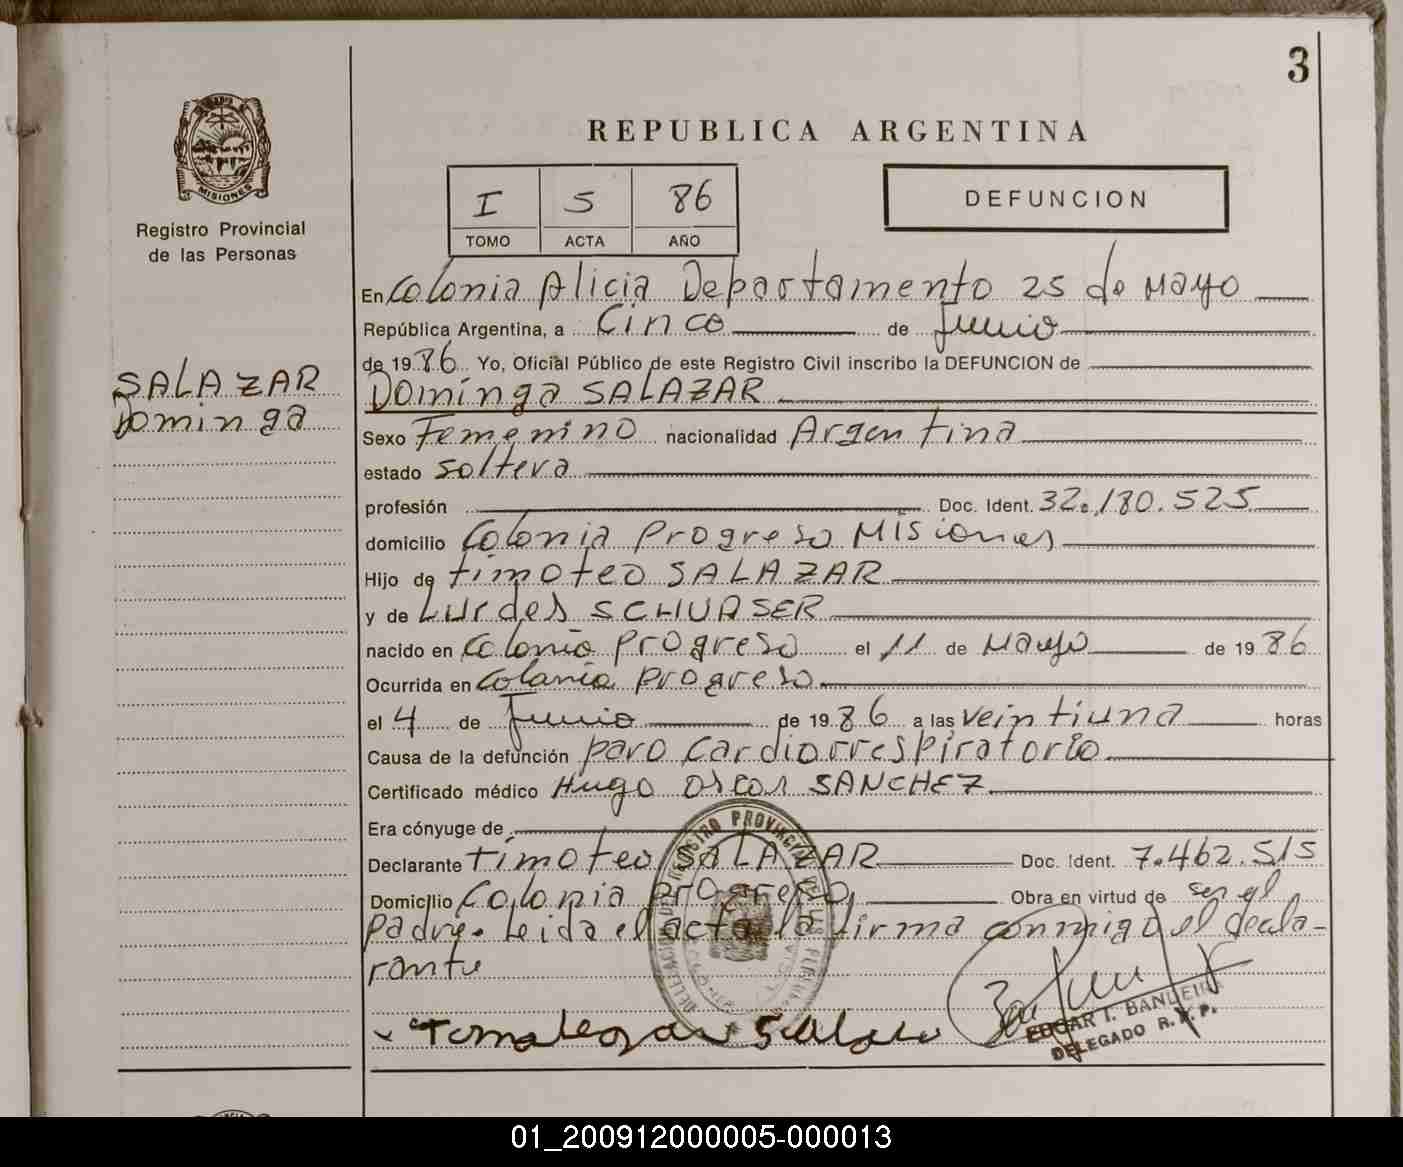 3
MISIONES
Registro Provincial
de las Personas
SALAZAR
Dominga
REPUBLICA ARGENTINA
I 5 86
TOMO ACTA AÑO
DEFUNCION
En Colonia Alicia Departamento 25 de Mayo
República Argentina, a Cinco de Junio
de 1986 Yo, Oficial Público de este Registro Civil inscribo la DEFUNCION de
Dominga SALAZAR
Sexo Femenino nacionalidad Argentina
estado soltera
profesión Doc. Ident. 32.180.525
domicilio Colonia Progreso Misiones
Hijo de timoteo SALAZAR
y de Lurdes SCHUASER
nacido en Colonia Progreso el 11 de Mayo de 1986
Ocurrida en Colonia Progreso
el 4 de Junio de 1986 a las veintiuna horas
Causa de la defunción paro cardiorrespiratorio
Certificado médico Hugo Oscar SANCHEZ
Era cónyuge de
Declarante timoteo SALAZAR Doc. Ident. 7.462.515
Domicilio Colonia progreso, Obra en virtud de ser el
padre. Leida el acta la firma conmigo el decla-
rante
EDGAR I. BANDEIRA
DELEGADO R. P. P.
01_200912000005-000013